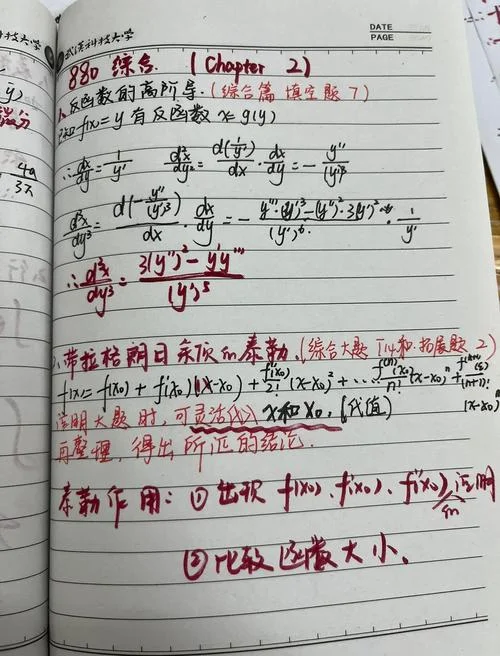 武汉科技大学
DATE
PAGE
880 综合. (Chapter 2)
1、反函数的高阶导.(综合篇 填空题 7)
已知 f(x)=y 有反函数 x=g(y)
∴ dx/dy = 1/y'  d²x/dy² = d(1/y')/dx · dx/dy = - y''/(y')³
d³x/dy³ = d(-y''/(y')³)/dx · dx/dy = - y'''·(y')³-(y'')²·3(y')²/(y')⁶ · 1/y'
∴ d³x/dy³ = 3(y'')²-y'y'''/(y')⁵
2、带拉格朗日余项的泰勒.(综合大题 14和 拓展题 2)
f(x)= f(x₀) + f'(x₀)(x-x₀) + f''(x₀)/2! (x-x₀)² + ... f⁽ⁿ⁾(x₀)/n! (x-x₀)ⁿ + f⁽ⁿ⁺¹⁾(ξ)/(n+1)!
(x-x₀)
证明大题时,可灵活 x和x₀.(代值)
再整理,得出所证的结论.
泰勒作用:① 出现 f(x₀)、f'(x₀)、f''(x₀) 证明
② 比较函数大小.